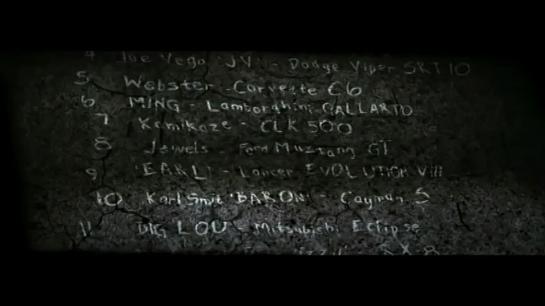 4 Joe Vega 'JV' - Dodge Viper SRT10
5 Webster - Corvette C6
6 MING - Lamborghini GALLARDO
7 Kamikaze - CLK 500
8 Jewels Ford Mustang GT
9 'EARL' - Lancer EVOLUTION VIII
10 Karl Smit 'BARON' - Cayman S
11 BIG LOU - Mitsubichi Eclipse
RX 8